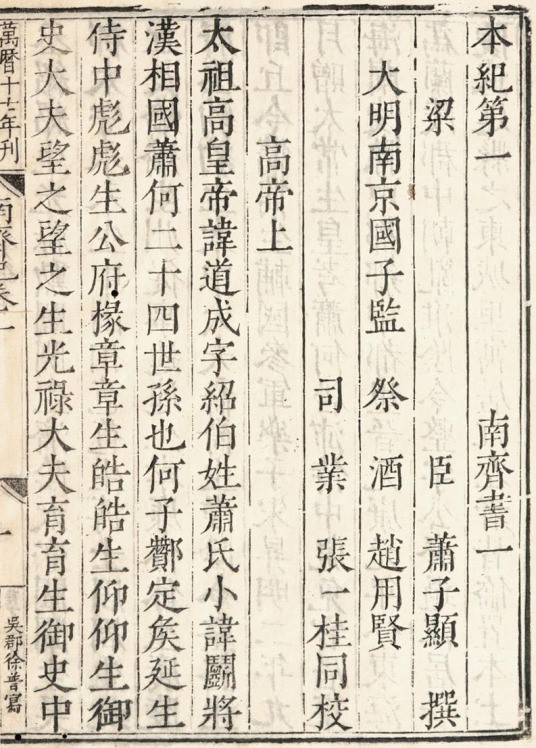 本紀第一　南齊書一
梁　臣蕭子顯　撰
大明南京國子監　祭酒趙用賢
司業張一桂同校
高帝上
太祖高皇帝諱道成字紹伯姓蕭氏小諱鬬將
漢相國蕭何二十四世孫也何子酇定矦延生
侍中彪彪生公府掾章章生皓皓生仰仰生御
史大夫望之望之生光祿大夫育育生御史中
萬曆十七年刊　南齊紀卷一　一　吳郡徐普寫